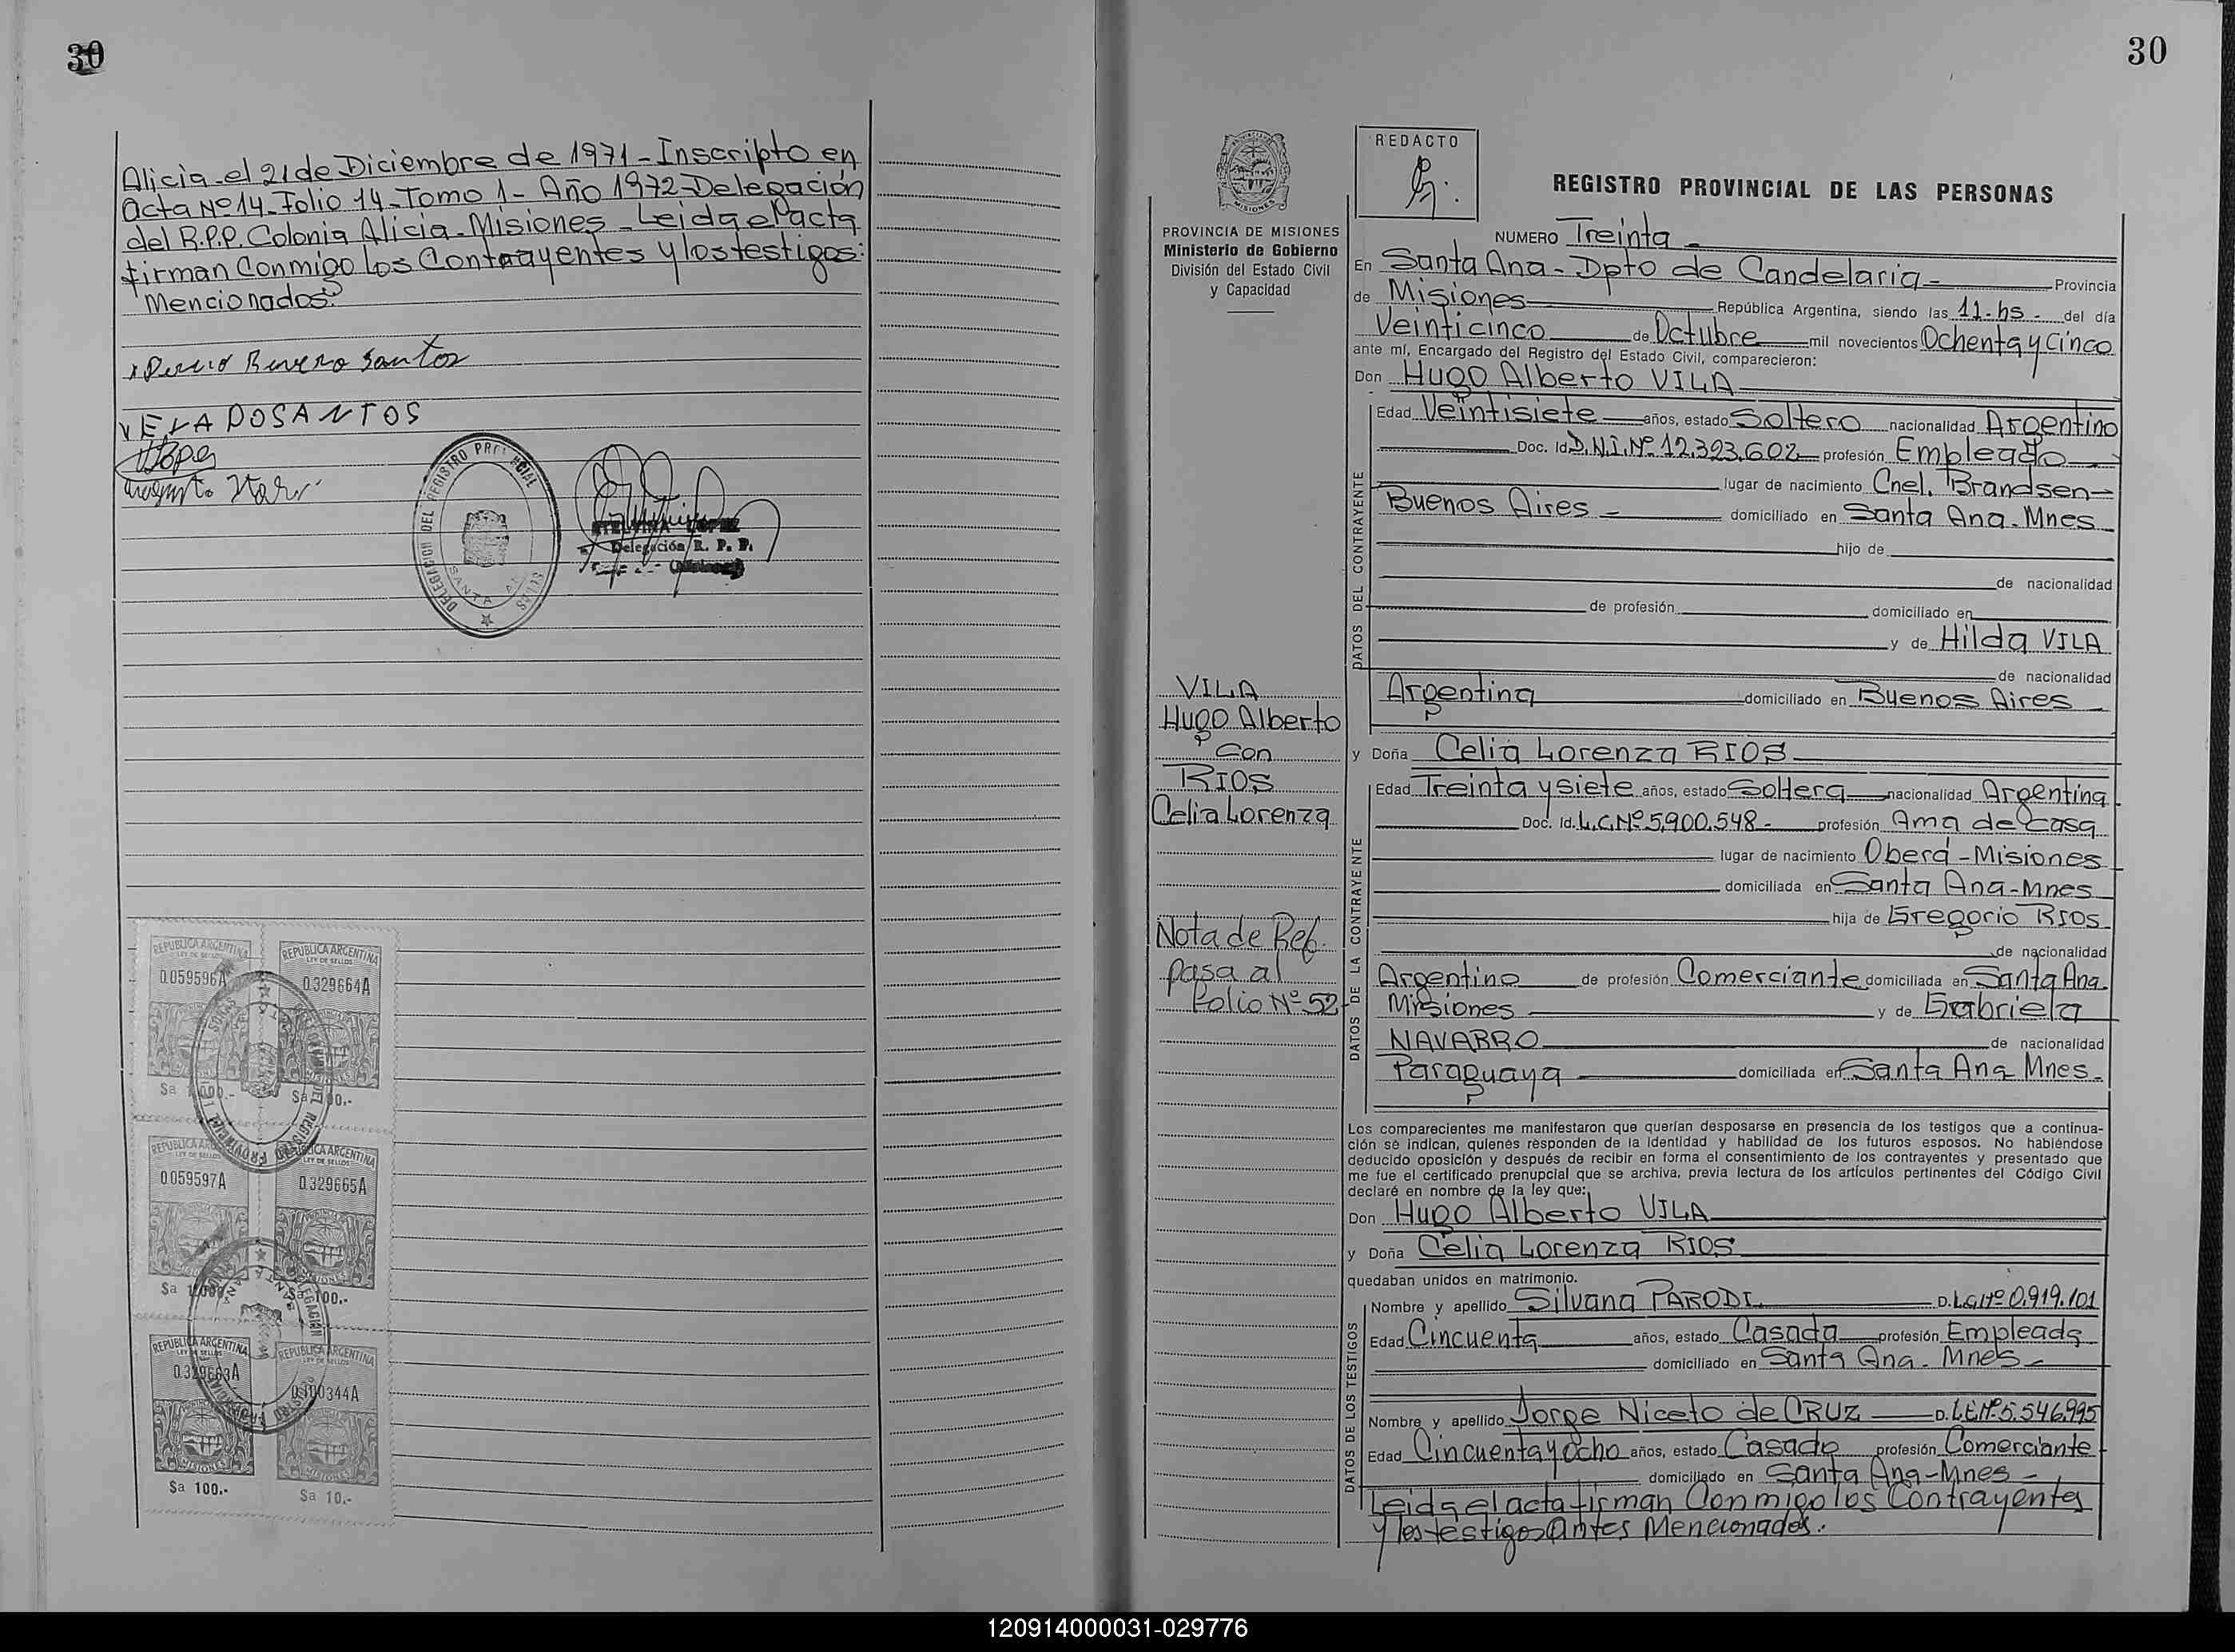 30
Alicia - el 21 de Diciembre de 1971 - Inscripto en
Acta Nº 14 - Folio 14 - Tomo 1 - Año 1972 - Delegación
del R.P.P. Colonia Alicia - Misiones - Leida el acta
firman Conmigo los Contrayentes y los testigos:
Mencionados.
Santos
DOSANTOS
DELEGACION DEL REGISTRO PROVINCIAL
SANTA ANA
LOPEZ
Delegación R. P. P.
(Misiones)
REPUBLICA ARGENTINA
LEY DE SELLOS
0.059596A
MISIONES
REPUBLICA ARGENTINA
LEY DE SELLOS
0.329664A
MISIONES
REPUBLICA ARGENTINA
LEY DE SELLOS
0.059597A
MISIONES
REPUBLICA ARGENTINA
LEY DE SELLOS
0.329665A
MISIONES
$a 100.-
REPUBLICA ARGENTINA
LEY DE SELLOS
0.329663A
MISIONES
$a 100.-
REPUBLICA ARGENTINA
LEY DE SELLOS
0.100344A
MISIONES
$a 10.-
30
PROVINCIA DE MISIONES
Ministerio de Gobierno
División del Estado Civil
y Capacidad
VILA
Hugo Alberto
Con
RIOS
Celia Lorenza
Nota de Ref.
pasa al
folio Nº 52
REDACTO
REGISTRO PROVINCIAL DE LAS PERSONAS
NUMERO Treinta
En Santa Ana - Dpto de Candelaria - Provincia
de Misiones República Argentina, siendo las 11 - hs - del día
Veinticinco de Octubre mil novecientos Ochenta y Cinco
ante mí, Encargado del Registro del Estado Civil, comparecieron:
Don Hugo Alberto VILA
DATOS DEL CONTRAYENTE
Edad Veintisiete años, estado Soltero nacionalidad Argentino
Doc. Id. D.N.I. Nº 12.323.602 profesión Empleado
lugar de nacimiento Cnel. Brandsen -
Buenos Aires - domiciliado en Santa Ana - Mnes
hijo de
de nacionalidad
de profesión domiciliado en
y de Hilda VILA
de nacionalidad
Argentina domiciliado en Buenos Aires
y Doña Celia Lorenza RIOS
DATOS DE LA CONTRAYENTE
Edad Treinta y siete años, estado Soltera nacionalidad Argentina
Doc. Id. L.C. Nº 5.900.548 - profesión Ama de Casa
lugar de nacimiento Oberá - Misiones
domiciliada en Santa Ana - Mnes
hija de Gregorio RIOS
de nacionalidad
Argentino de profesión Comerciante domiciliada en Santa Ana
Misiones y de Gabriela
NAVARRO de nacionalidad
Paraguaya domiciliada en Santa Ana Mnes.
Los comparecientes me manifestaron que querían desposarse en presencia de los testigos que a continua-
ción se indican, quienes responden de la identidad y habilidad de los futuros esposos. No habiéndose
deducido oposición y después de recibir en forma el consentimiento de los contrayentes y presentado que
me fue el certificado prenupcial que se archiva, previa lectura de los artículos pertinentes del Código Civil
declaré en nombre de la ley que:
Don Hugo Alberto VILA
y Doña Celia Lorenza RIOS
quedaban unidos en matrimonio.
DATOS DE LOS TESTIGOS
Nombre y apellido Silvana PARODI D. L.C. Nº 0.919.101
Edad Cincuenta años, estado Casada profesión Empleada
domiciliado en Santa Ana - Mnes -
Nombre y apellido Jorge Niceto de CRUZ D. L.E. Nº 5.546.995
Edad Cincuenta y Ocho años, estado Casado profesión Comerciante
domiciliado en Santa Ana - Mnes -
Leida el acta firman Conmigo los Contrayentes
y los testigos Antes Mencionados.
120914000031-029776